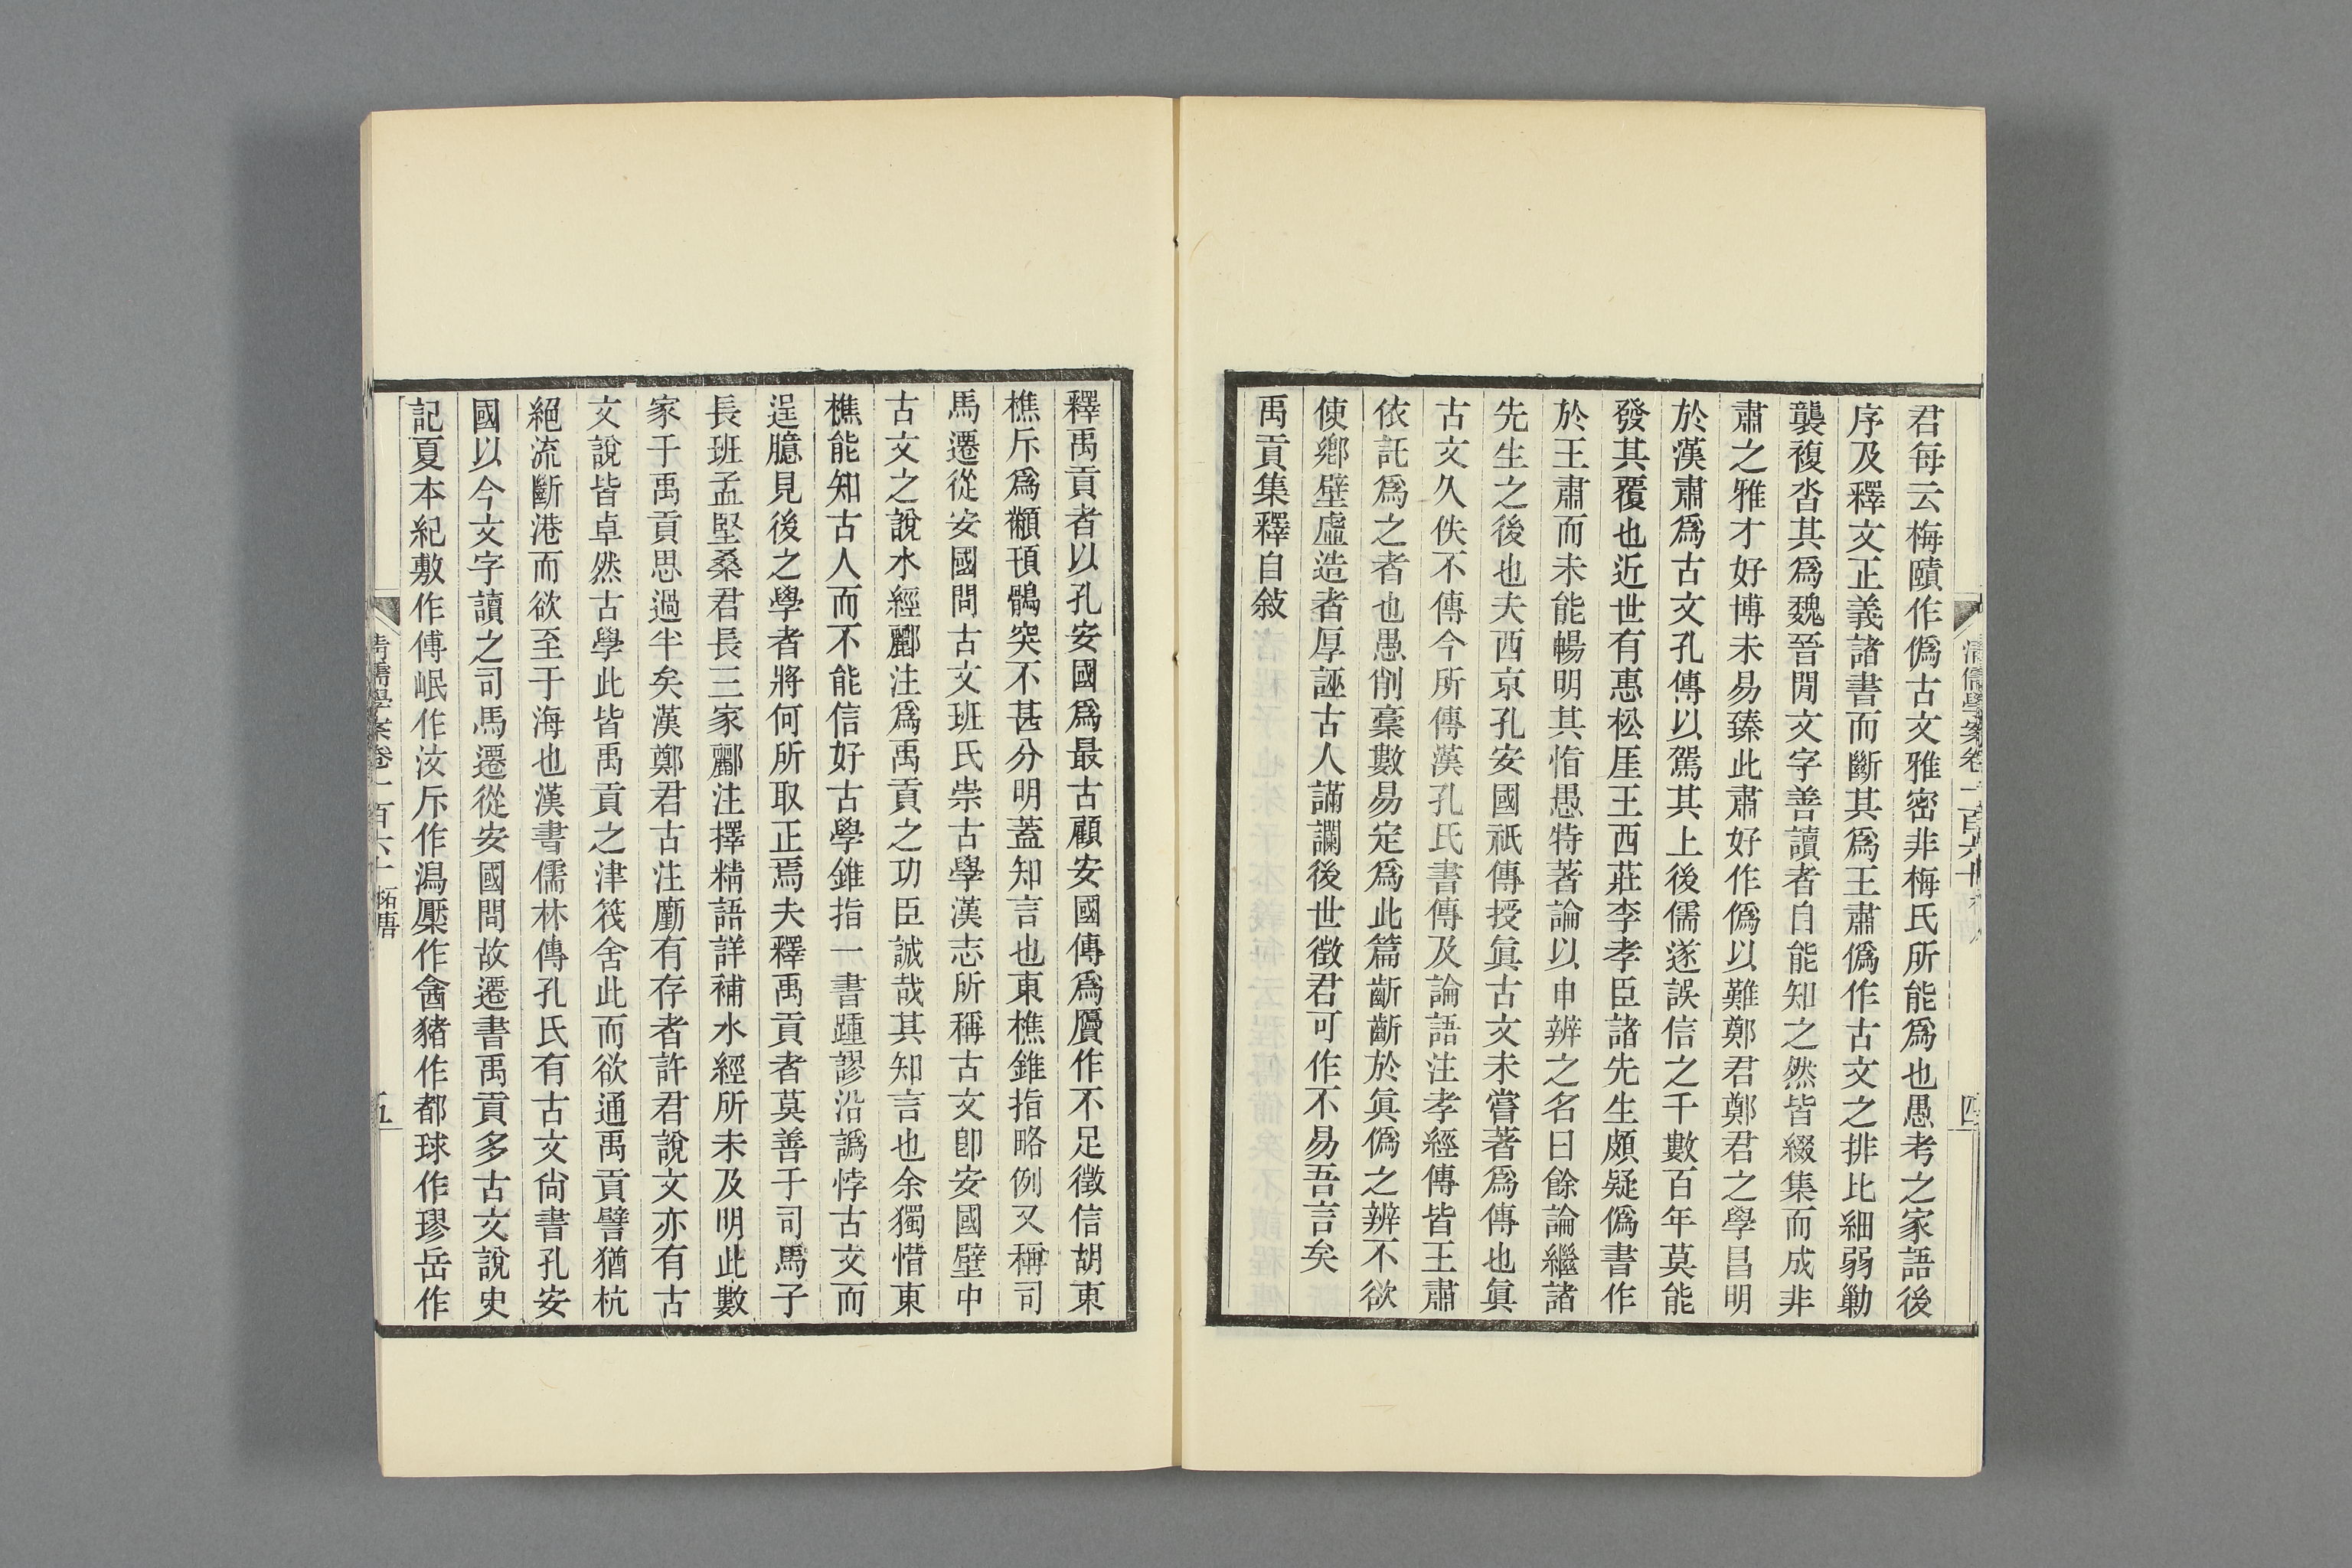 君每云梅賾作僞古文雅密非梅氏所能爲也愚考之家語後
序及釋文正義諸書而斷其爲王肅僞作古文之排比細弱勦
襲複沓其爲魏晉閒文字善讀者自能知之然皆綴集而成非
肅之雅才好博未易臻此肅好作僞以難鄭君鄭君之學昌明
於漢肅爲古文孔傳以駕其上後儒遂誤信之千數百年莫能
發其覆也近世有惠松厓王西莊李孝臣諸先生頗疑僞書作
於王肅而未能暢明其恉愚特著論以申辨之名曰餘論繼諸
先生之後也夫西京孔安國祇傳授眞古文未嘗著爲傳也眞
古文久佚不傳今所傳漢孔氏書傳及論語注孝經傳皆王肅
依託爲之者也愚削稾數易定爲此篇齗齗於眞僞之辨不欲
使鄉壁虛造者厚誣古人讏讕後世徵君可作不易吾言矣
禹貢集釋自敘
清儒學案卷一百六十
四
釋禹貢者以孔安國爲最古顧安國傳爲贗作不足徵信胡東
樵斥爲顢頇鶻突不甚分明蓋知言也東樵錐指略例又稱司
馬遷從安國問古文班氏崇古學漢志所稱古文卽安國壁中
古文之說水經酈注爲禹貢之功臣誠哉其知言也余獨惜東
樵能知古人而不能信好古學錐指一書踵謬沿譌悖古文而
逞臆見後之學者將何所取正焉夫釋禹貢者莫善于司馬子
長班孟堅桑君長三家酈注擇精語詳補水經所未及明此數
家于禹貢思過半矣漢鄭君古注廑有存者許君說文亦有古
文說皆卓然古學此皆禹貢之津筏舍此而欲通禹貢譬猶杭
絕流斷港而欲至于海也漢書儒林傳孔氏有古文尙書孔安
國以今文字讀之司馬遷從安國問故遷書禹貢多古文說史
記夏本紀敷作傅岷作汶斥作潟檿作酓豬作都球作璆岳作
清儒學案卷一百六十 柘唐
五